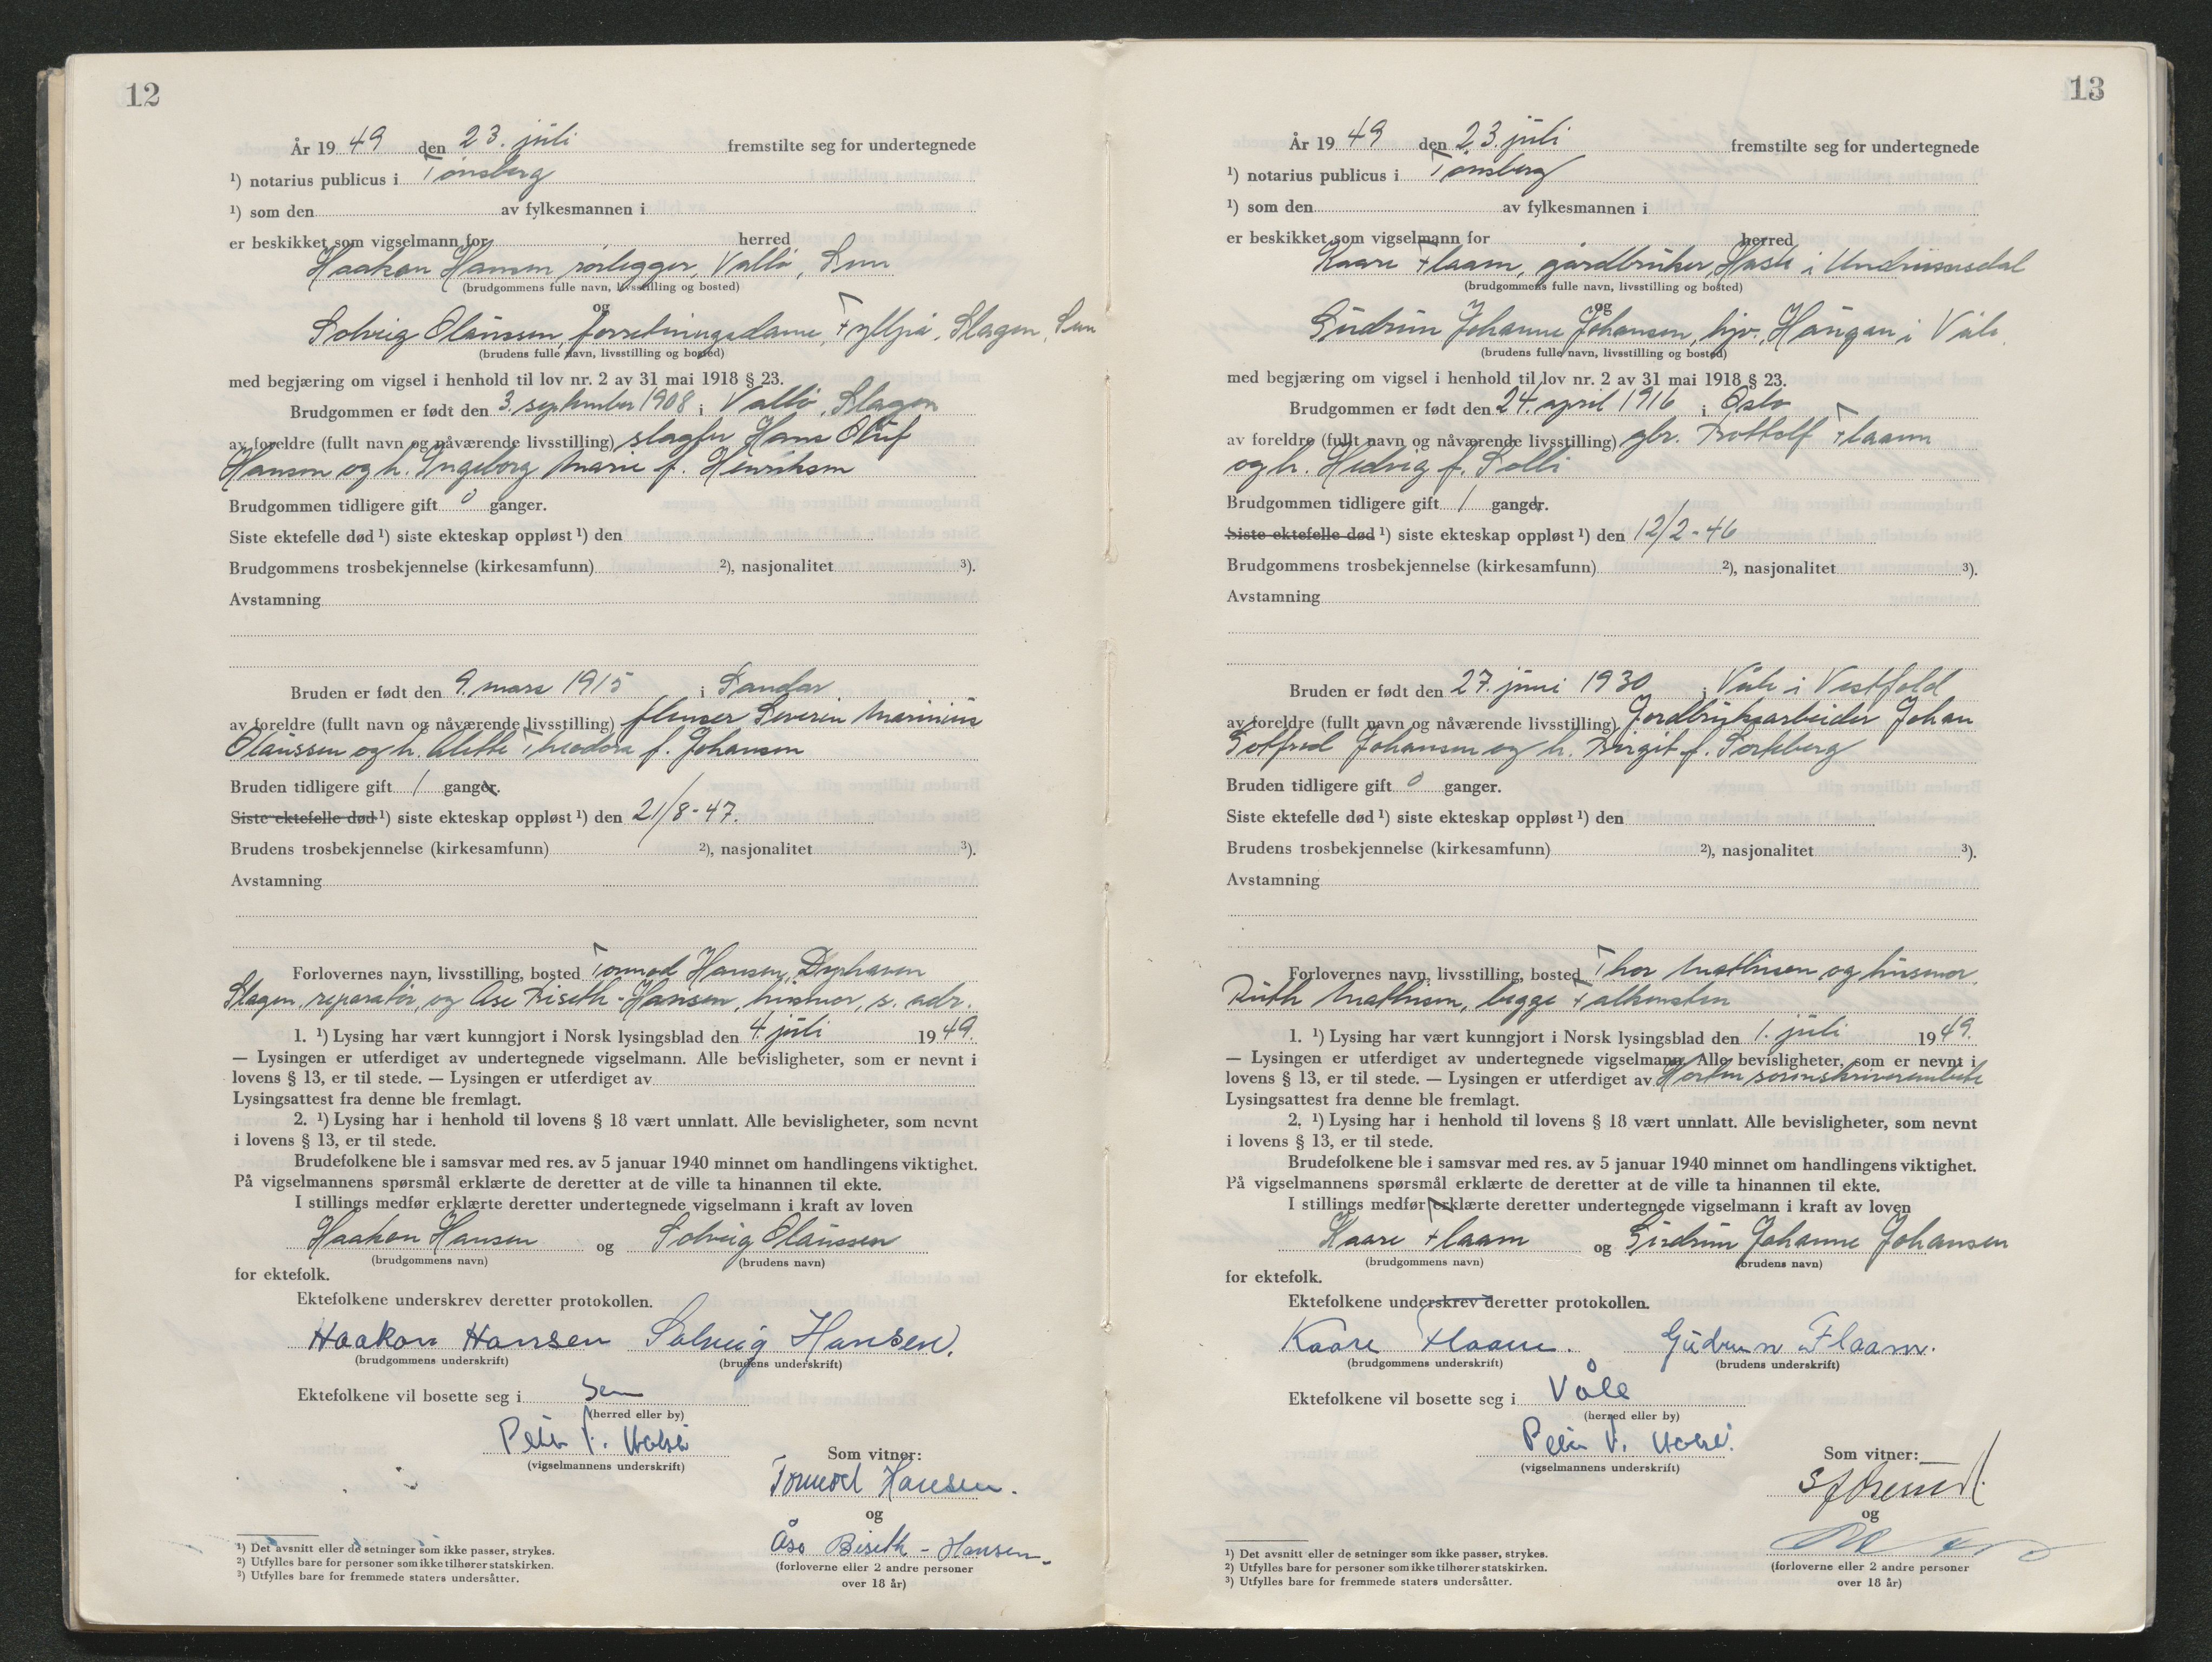 12
År 19 49 den 23. juli fremstilte seg for undertegnede
¹) notarius publicus i Tønsberg
¹) som den av fylkesmannen i
er beskikket som vigselmann for herred
Haakon Hansen rørlegger, Vallø, Sem
(brudgommens fulle navn, livsstilling og bosted)
og
Solveig Olaussen, forretningsdame, Fyllpå, Slagen, Sem
(brudens fulle navn, livsstilling og bosted)
med begjæring om vigsel i henhold til lov nr. 2 av 31 mai 1918 § 23.
Brudgommen er født den 3. september 1908 i Vallø, Slagen
av foreldre (fullt navn og nåværende livsstilling) Hans Oluf
Hansen og h. Ingeborg Marie f. Henriksen
Brudgommen tidligere gift 0 ganger.
Siste ektefelle død ¹) siste ekteskap oppløst ¹) den
Brudgommens trosbekjennelse (kirkesamfunn) ²), nasjonalitet ³).
Avstamning
Bruden er født den 9. mars 1915 i Sandar
av foreldre (fullt navn og nåværende livsstilling) flenser Severin Marinius
Olaussen og h. Alette Theodora f. Johansen
Bruden tidligere gift 1 ganger.
Siste ektefelle død ¹) siste ekteskap oppløst ¹) den 21/8-47.
Brudens trosbekjennelse (kirkesamfunn) ²), nasjonalitet ³).
Avstamning
Forlovernes navn, livsstilling, bosted Tormod Hansen,
Slagen, reparatør, og Åse Biseth-Hansen, husmor, s. adr.
1. ¹) Lysing har vært kunngjort i Norsk lysingsblad den 4. juli 1949.
— Lysingen er utferdiget av undertegnede vigselmann. Alle bevisligheter, som er nevnt i
lovens § 13, er til stede. — Lysingen er utferdiget av
Lysingsattest fra denne ble fremlagt.
2. ¹) Lysing har i henhold til lovens § 18 vært unnlatt. Alle bevisligheter, som nevnt
i lovens § 13, er til stede.
Brudefolkene ble i samsvar med res. av 5 januar 1940 minnet om handlingens viktighet.
På vigselmannens spørsmål erklærte de deretter at de ville ta hinannen til ekte.
I stillings medfør erklærte deretter undertegnede vigselmann i kraft av loven
Haakon Hansen og Solveig Olaussen
(brudgommens navn) (brudens navn)
for ektefolk.
Ektefolkene underskrev deretter protokollen.
Haakon Hansen Solveig Hansen.
(brudgommens underskrift) (brudens underskrift)
Ektefolkene vil bosette seg i Sem
(herred eller by)
Peter V.
(vigselmannens underskrift)
Som vitner:
Tormod Hansen.
og
Åse Biseth - Hansen.
(forloverne eller 2 andre personer
over 18 år)
¹) Det avsnitt eller de setninger som ikke passer, strykes.
²) Utfylles bare for personer som ikke tilhører statskirken.
³) Utfylles bare for fremmede staters undersåtter.
13
År 19 49 den 23. juli fremstilte seg for undertegnede
¹) notarius publicus i Tønsberg
¹) som den av fylkesmannen i
er beskikket som vigselmann for herred
Kaare Flaam, gårdbruker, i Undrumsdal
(brudgommens fulle navn, livsstilling og bosted)
og
Gudrun Johanne Johansen, hjv., Haugan i Våle
(brudens fulle navn, livsstilling og bosted)
med begjæring om vigsel i henhold til lov nr. 2 av 31 mai 1918 § 23.
Brudgommen er født den 24. april 1916 i Oslo
av foreldre (fullt navn og nåværende livsstilling) gbr. Flaam
og h. Hedvig f. Solli
Brudgommen tidligere gift 1 ganger.
Siste ektefelle død ¹) siste ekteskap oppløst ¹) den 12/2-46
Brudgommens trosbekjennelse (kirkesamfunn) ²), nasjonalitet ³).
Avstamning
Bruden er født den 27. juni 1930 i Våle i Vestfold
av foreldre (fullt navn og nåværende livsstilling) Jordbruksarbeider Johan
Gotfred Johansen og h. Birgit f.
Bruden tidligere gift 0 ganger.
Siste ektefelle død ¹) siste ekteskap oppløst ¹) den
Brudens trosbekjennelse (kirkesamfunn) ²), nasjonalitet ³).
Avstamning
Forlovernes navn, livsstilling, bosted Thor Mathisen og husmor
Ruth Mathisen, begge Falkensten
1. ¹) Lysing har vært kunngjort i Norsk lysingsblad den 1. juli 1949.
— Lysingen er utferdiget av undertegnede vigselmann. Alle bevisligheter, som er nevnt i
lovens § 13, er til stede. — Lysingen er utferdiget av Horten sorenskriverembete
Lysingsattest fra denne ble fremlagt.
2. ¹) Lysing har i henhold til lovens § 18 vært unnlatt. Alle bevisligheter, som nevnt
i lovens § 13, er til stede.
Brudefolkene ble i samsvar med res. av 5 januar 1940 minnet om handlingens viktighet.
På vigselmannens spørsmål erklærte de deretter at de ville ta hinannen til ekte.
I stillings medfør erklærte deretter undertegnede vigselmann i kraft av loven
Kaare Flaam og Gudrun Johanne Johansen
(brudgommens navn) (brudens navn)
for ektefolk.
Ektefolkene underskrev deretter protokollen.
Kaare Flaam. Gudrun Flaam.
(brudgommens underskrift) (brudens underskrift)
Ektefolkene vil bosette seg i Våle
(herred eller by)
Peter V.
(vigselmannens underskrift)
Som vitner:
og
(forloverne eller 2 andre personer
over 18 år)
¹) Det avsnitt eller de setninger som ikke passer, strykes.
²) Utfylles bare for personer som ikke tilhører statskirken.
³) Utfylles bare for fremmede staters undersåtter.